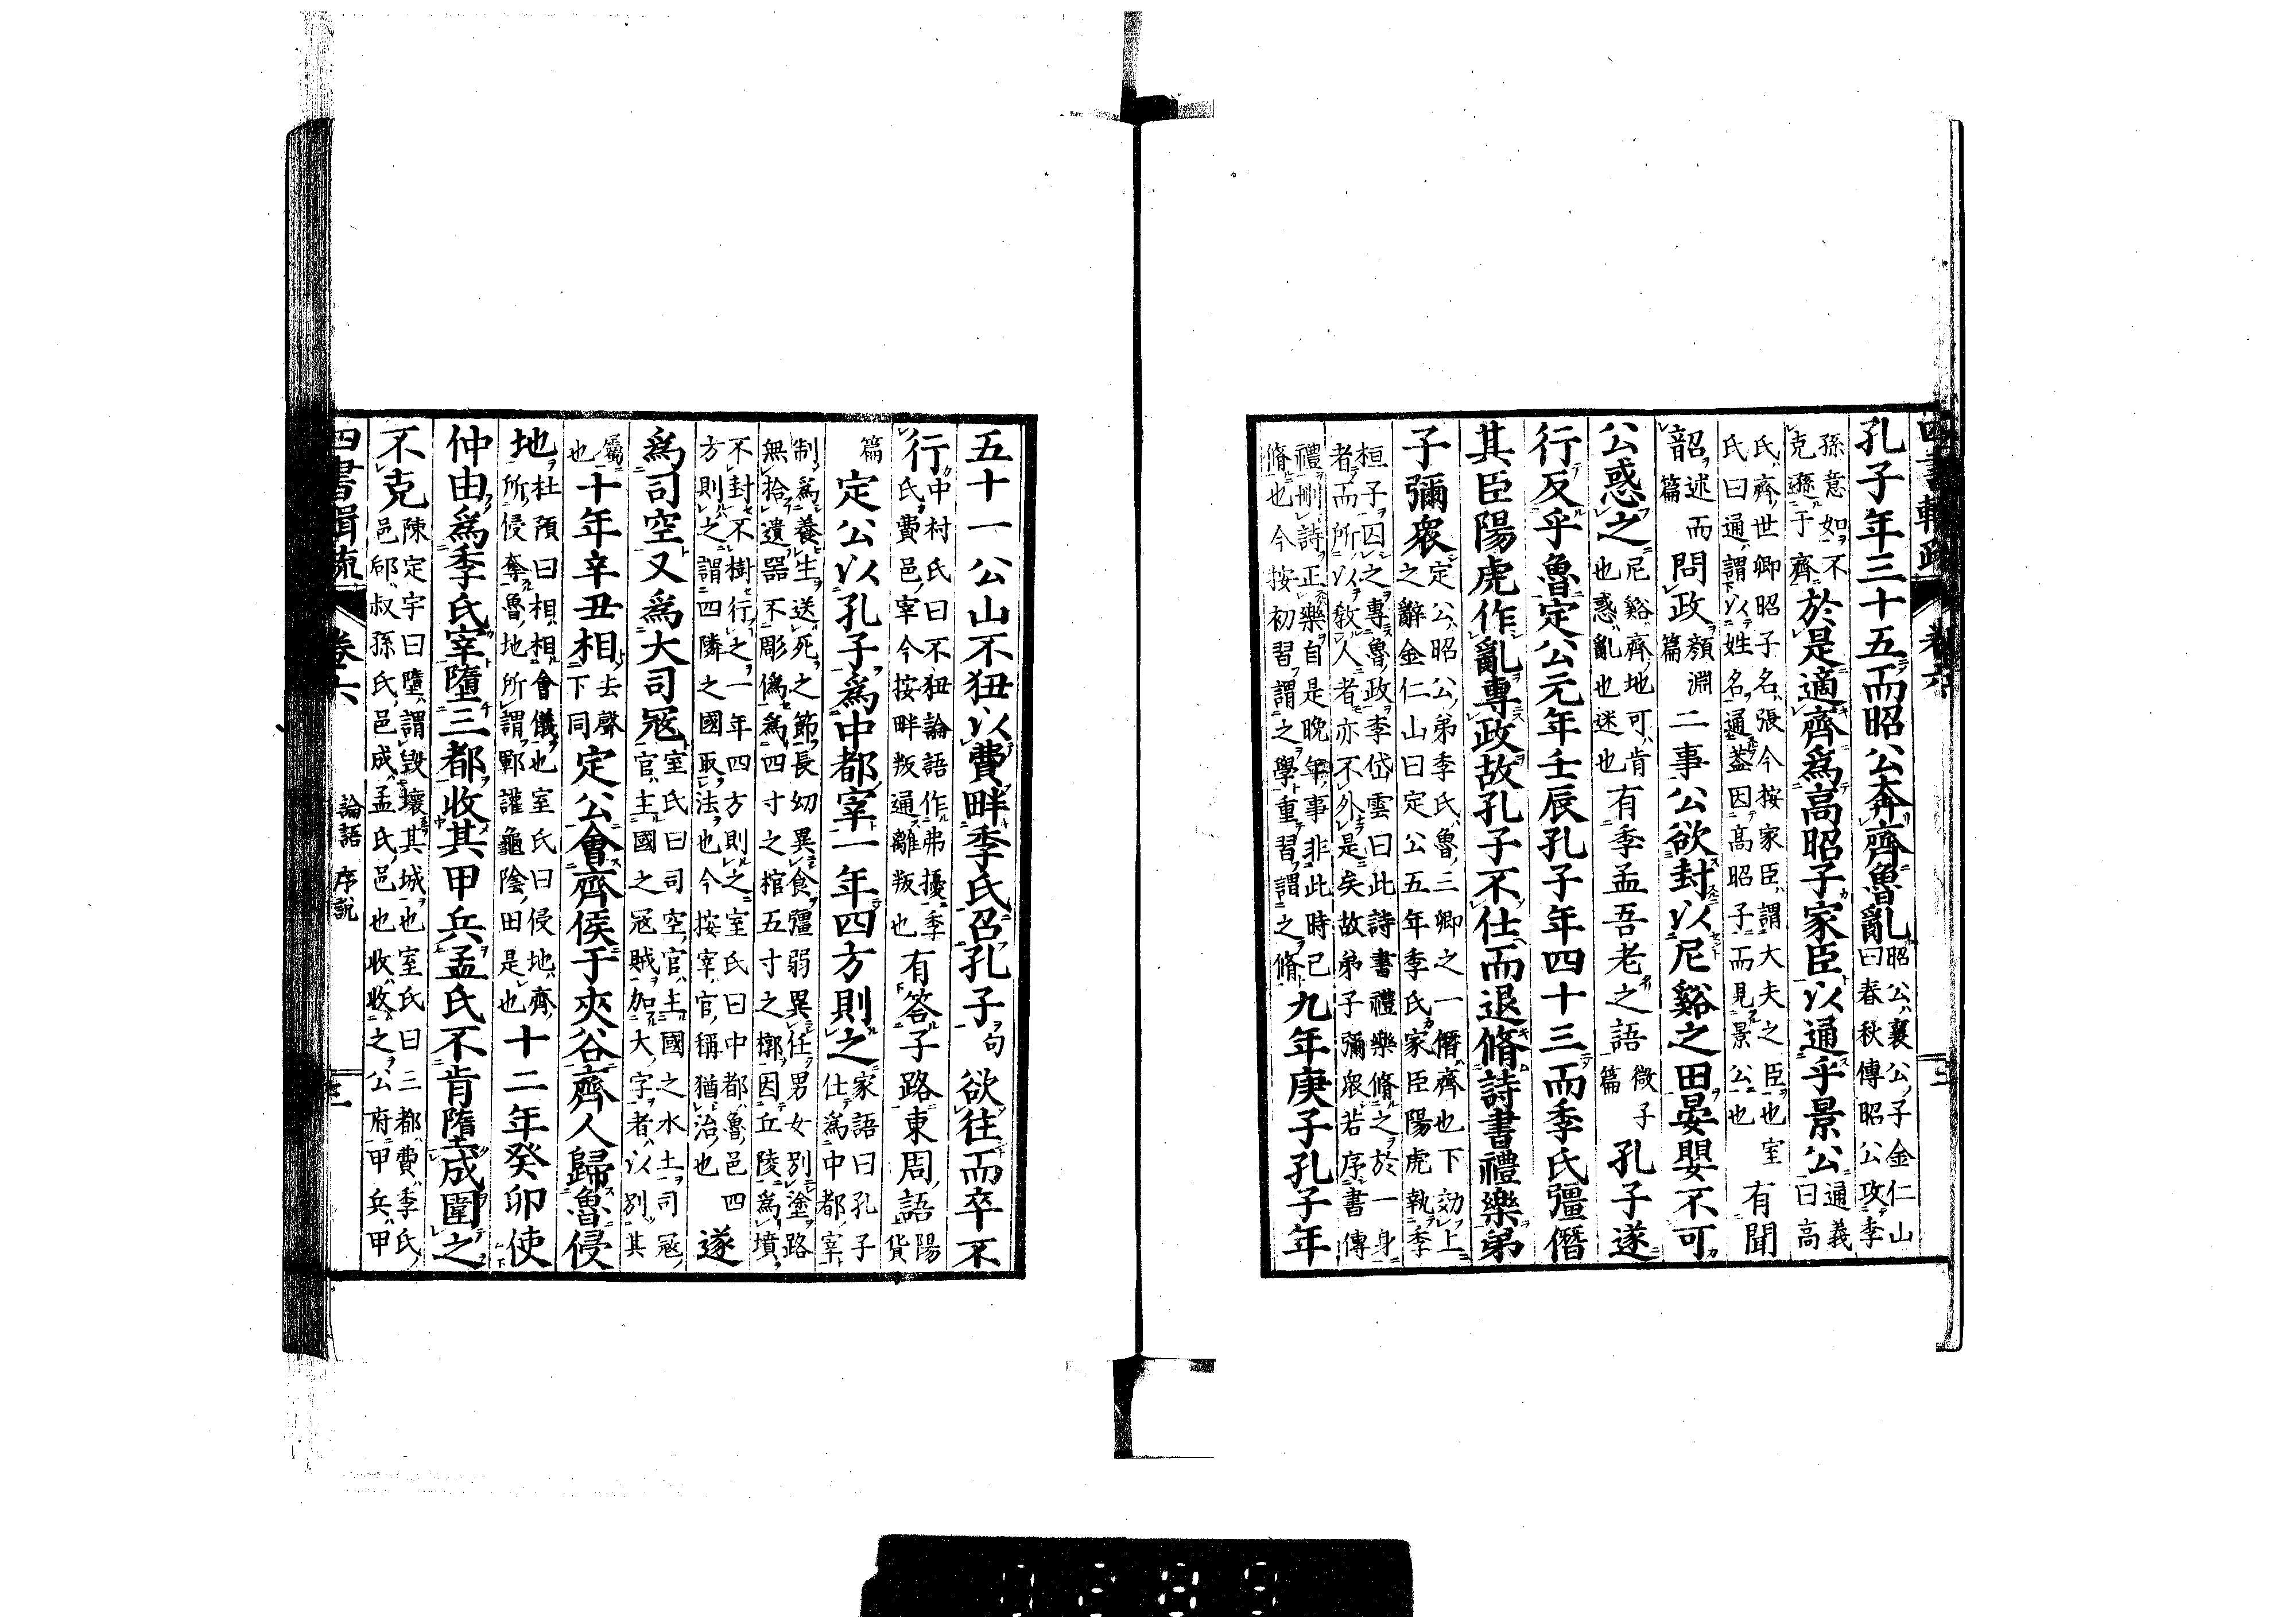 四書輯疏 卷六 三
孔子年三十五而昭公奔齊魯亂昭公襄公子金仁山曰春秋傳昭公攻季
孫意如不克遜于齊於是適齊爲高昭子家臣以通乎景公通義曰高
氏齊世卿昭子名張今按家臣謂大夫之臣也室氏曰通謂以姓名通蓋因高昭子而見景公也有聞
韶述而篇問政顏淵篇二事公欲封以尼谿之田晏嬰不可
公惑之尼谿齊地可肯也惑亂也迷也有季孟吾老之語微子篇孔子遂
行反乎魯定公元年壬辰孔子年四十三而季氏彊僭
其臣陽虎作亂專政故孔子不仕而退脩詩書禮樂弟
子彌衆定公昭公弟季氏魯三卿之一僭齊也下効上之辭金仁山曰定公五年季氏家臣陽虎執季
桓子囚之專魯政李岱雲曰此詩書禮樂脩之於一身者而所以敎人者亦不外是矣故弟子彌衆若序書傳
禮刪詩正樂自是晚年事非此時已脩也今按初習謂之學重習謂之脩九年庚子孔子年
五十一公山不狃以費畔季氏召孔子句欲往而卒不
行中村氏曰不狃論語作弗擾季氏費邑宰今按畔叛通離叛也有答子路東周語陽貨
篇定公以孔子爲中都宰一年四方則之家語曰孔子仕爲中都宰
制爲養生送死之節長幼異食彊弱異任男女別塗路無拾遺器不彫僞爲四寸之棺五寸之槨因丘陵爲墳
不封不樹行之一年四方則之室氏曰中都魯邑四方則之謂四隣之國取法也今按宰官稱猶治也遂
爲司空又爲大司寇室氏曰司空官主國之水土司寇官主國之寇賊加大字者以別其
屬也十年辛丑相去聲下同定公會齊侯于夾谷齊人歸魯侵
地杜預曰相相會儀也室氏曰侵地齊所侵奪魯地所謂鄆讙龜陰田是也十二年癸卯使
仲由爲季氏宰墮三都收其甲兵孟氏不肯墮成圍之
不克陳定宇曰墮謂毀壞其城也室氏曰三都費季氏邑郈叔孫氏邑成孟氏邑也收收之公府甲兵甲
四書輯疏 卷六 論語 序說 三